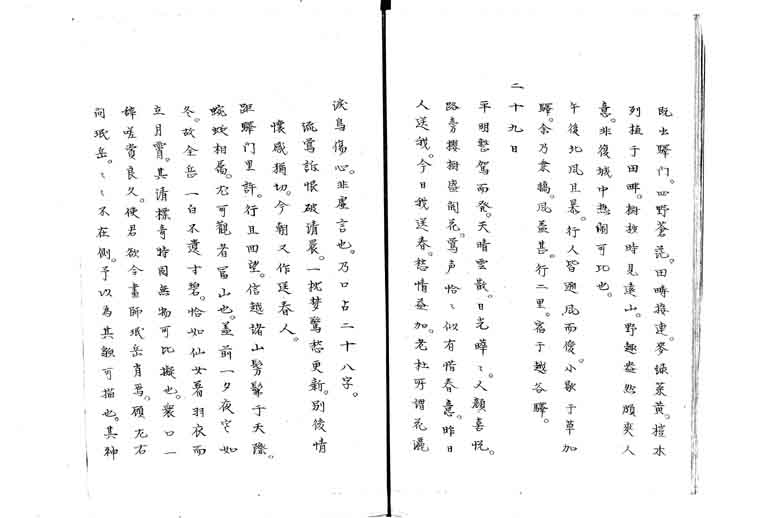 既出驛門。四野蒼茫。田疇接連。麥緑菜黄。榿木
列植于田畔。樹 時見遠山。野趣盎然頗爽人
意。非復城中熱閙可比也。
午後北風且暴。行人皆 風而 。小歇于草加
驛。余乃 。風益甚。行二里。宿于越谷驛。
二十九日
平明整駕而發。天晴雲散。日光曄〻。人顔喜悦。
路旁櫻樹盛開花。鶯声恰〻。似有惜春意。昨日
人送我。今日我送春。愁情益加。老杜所謂花濺
涙鳥傷心。非虚言也。乃口占二十八字。
流鶯訴恨破清晨。一枕梦驚愁更新。別後情
懐感 切。今朝又作送春人。
距驛門里許。行且回望。信越諸山髣髴于天際。
蜿蜒相属。尤可觀者冨山也。蓋前一夕夜 如
冬。故全岳一白不遺寸碧。恰如仙女着羽衣而
立月霄。其清標奇特固無物可比擬也。衆口一
辞嗟賞良久。使君欲令畫師珉岳肖焉。顧左右
问珉岳。〻〻不在側。予以為其 可描也。其神